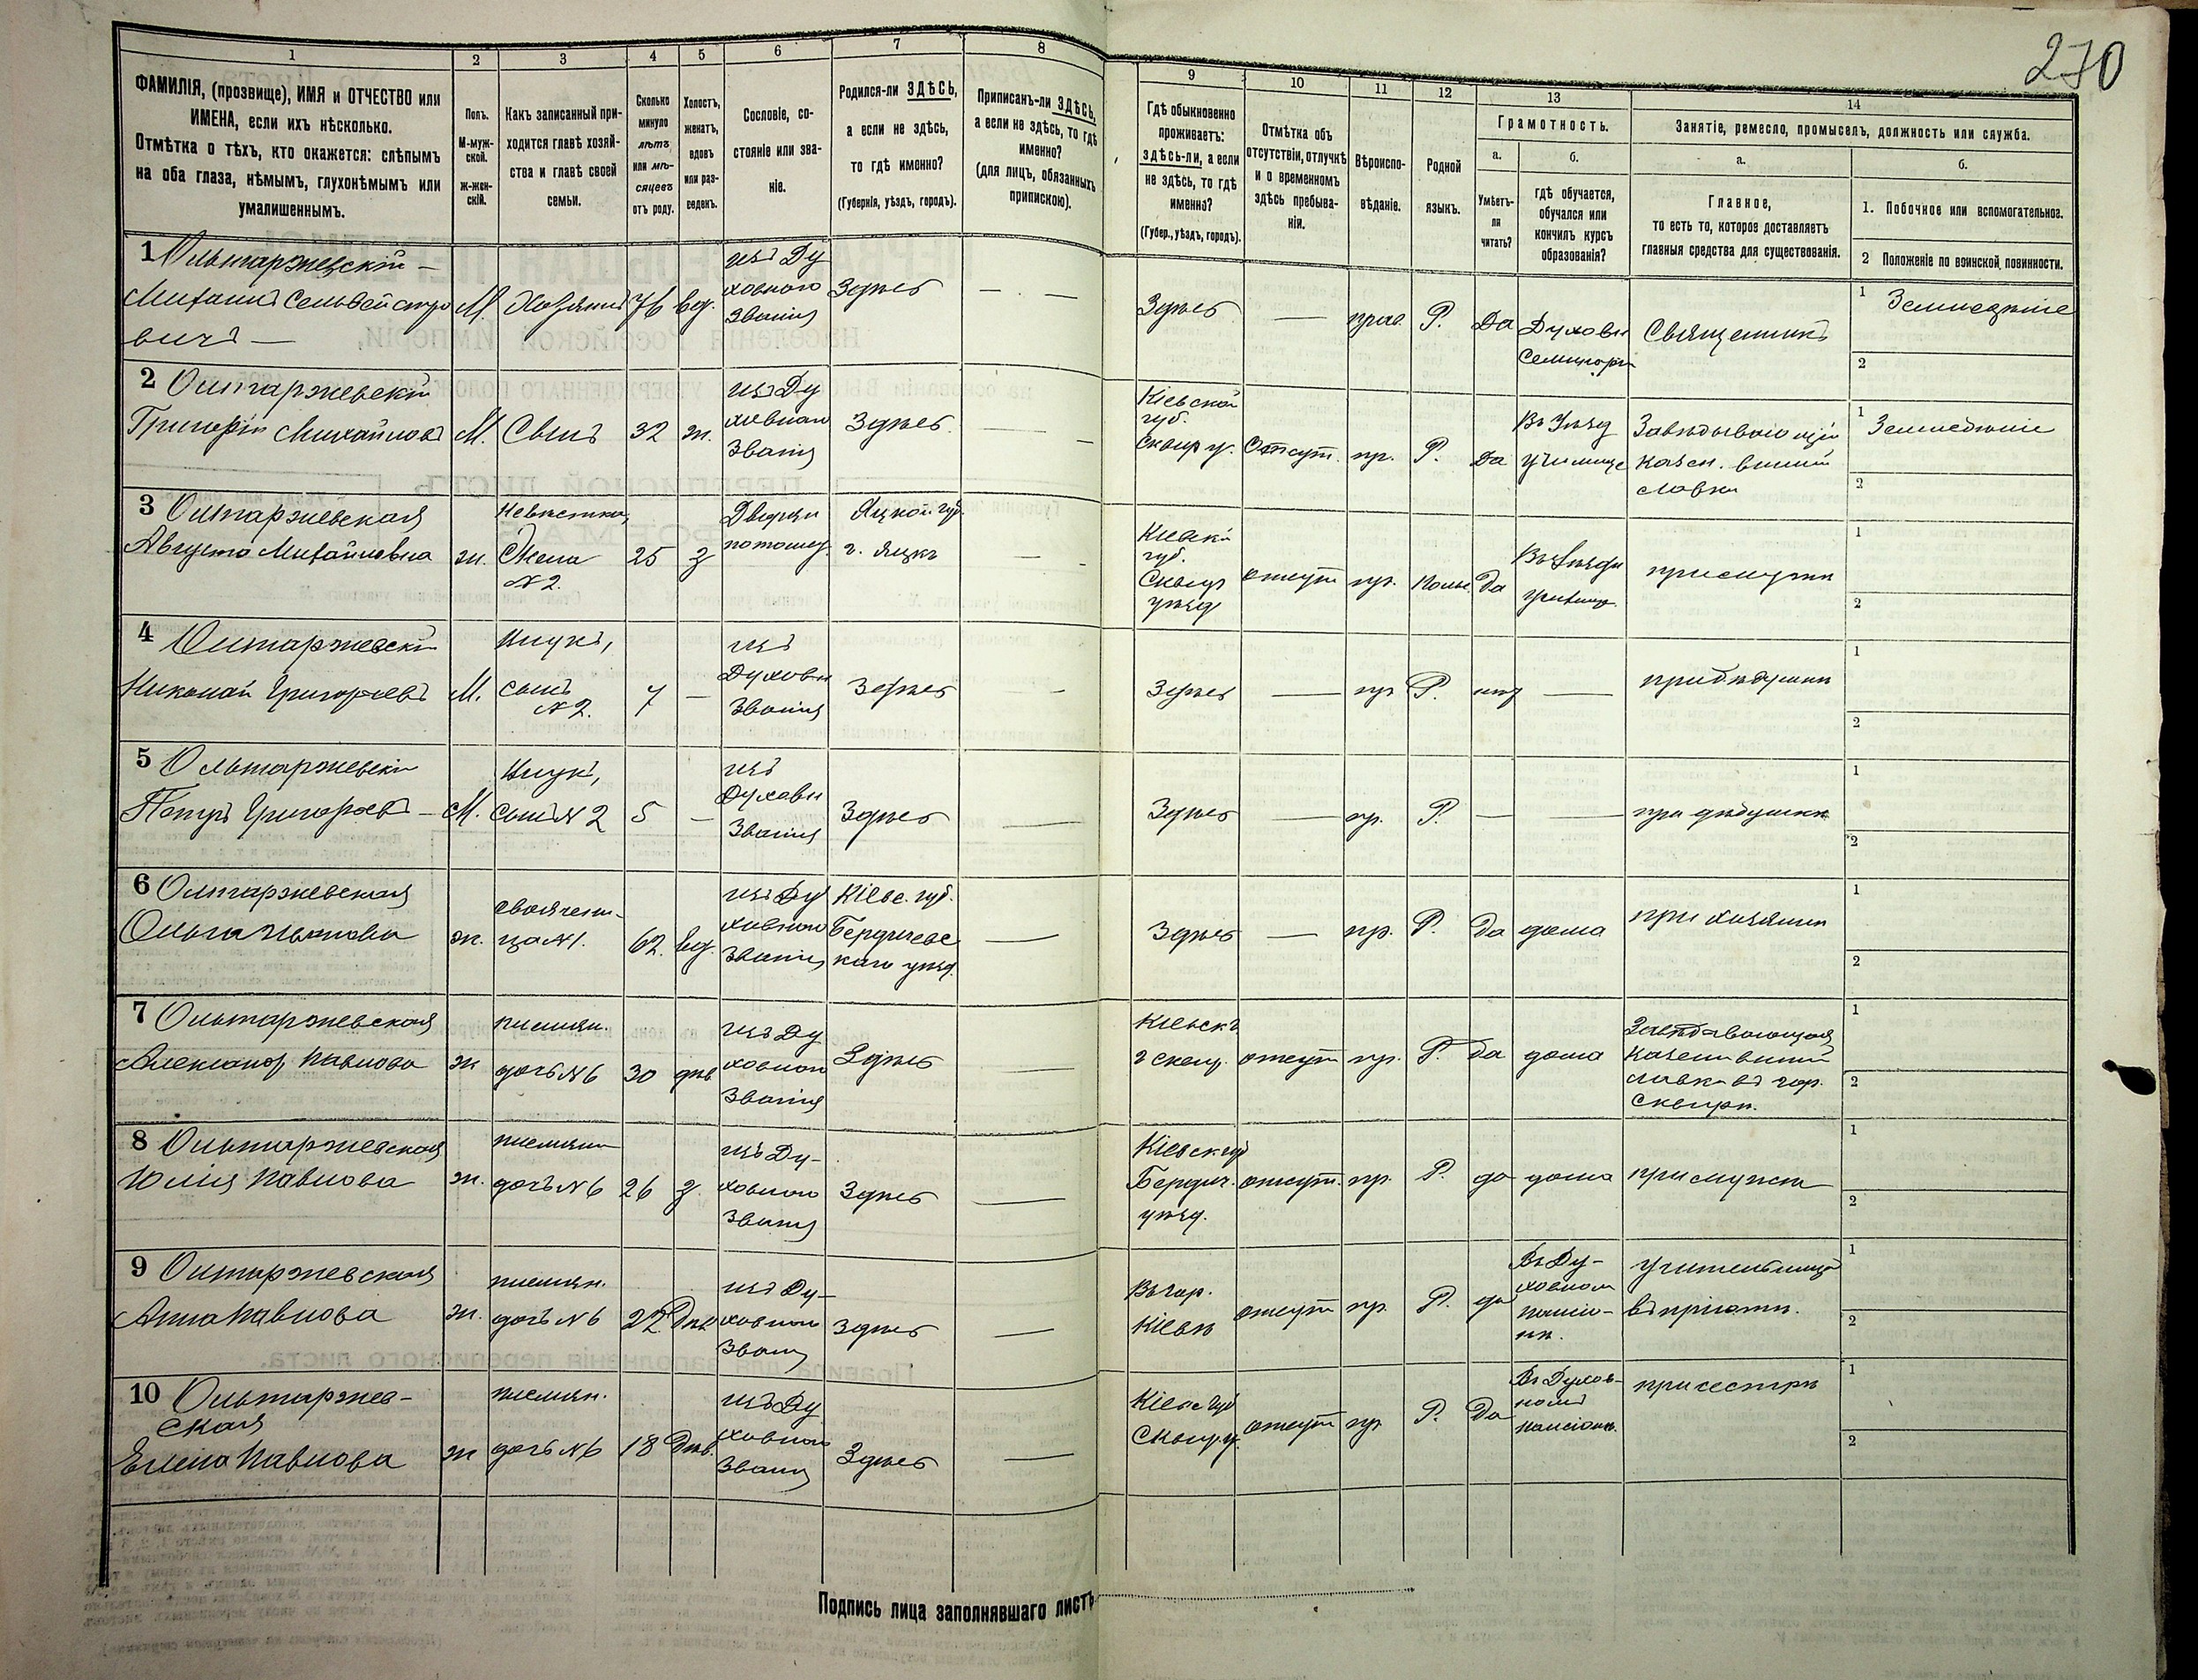 270
1 2 3 4 5 6 7 8 9 10 11 12 13 14
ФАМИЛІЯ, (прозвище), ИМЯ и ОТЧЕСТВО или
ИМЕНА, если ихъ нѣсколько.
Отмѣтка о тѣхъ, кто окажется: слѣпымъ
на оба глаза, нѣмымъ, глухонѣмымъ или
умалишеннымъ.
Полъ.
М-муж-
ской.
ж-жен-
скій.
Какъ записанный при-
ходится главѣ хозяй-
ства и главѣ своей
семьи.
Сколько
минуло
лѣтъ
или мѣ-
сяцевъ
отъ роду.
Холостъ,
женатъ,
вдовъ
или раз-
веденъ.
Сословіе, со-
стояніе или зва-
ніе.
Родился-ли ЗДѢСЬ,
а если не здѣсь,
то гдѣ именно?
(Губернія, уѣздъ, городъ).
Приписанъ-ли ЗДѢСЬ,
а если не здѣсь, то гдѣ
именно?
(для лицъ, обязанныхъ
припискою).
Гдѣ обыкновенно
проживаетъ:
здѣсь-ли, а если
не здѣсь, то гдѣ
именно?
(Губер., уѣздъ, городъ).
Отмѣтка объ
отсутствіи, отлучкѣ
и о временномъ
здѣсь пребыва-
ніи.
Вѣроиспо-
вѣданіе.
Родной
языкъ.
Грамотность.
а.
Умѣетъ-
ли
читать?
б.
гдѣ обучается,
обучался или
кончилъ курсъ
образованія?
Занятіе, ремесло, промыселъ, должность или служба.
а.
Главное,
то есть то, которое доставляетъ
главныя средства для существованія.
б.
1. Побочное или вспомогательное.
2 Положеніе по воинской повинности.
1 Ольтаржевскій –
Михаилъ Сельвестро
вичъ —
М Хозяинъ 76 вд.
изъ Ду
ховного
Званія
Здѣсь — —
Здѣсь — прав. Р. Да
Духовн
Семинарія
Священникъ
1 Земледѣліе
2
2 Олтаржевскій
Григорій Михайловъ
М. Сынъ 32 ж.
изъ Ду
ховного
Званія
Здѣсь — –
Кіевской
губ.
Сквир у.
Отсут. пр. Р. Да
Въ Уѣзд
училище
Завѣдывающій
казен. винной
лавки
1 Земледѣліе
2
3 Олтаржевская
Августа Михайловна
ж.
Невѣстка,
Жена
№ 2.
25 з
Дворян
потомс.
г.
—
Кіевской
губ.
Сквир
уѣзд
отсут пр. Польс. Да
Въ Уѣздн
училищ.
при мужѣ
1
2
4 Олтаржевскій
Николай Григорьевъ
М.
Внукъ,
сынъ
№ 2.
7 —
изъ
Духовн
Званія
Здѣсь —
Здѣсь — пр Р. нѣт —
при дѣдушкѣ
1
2
5 Ольтаржевскій
Петръ Григорьевъ –
М.
Внукъ,
Сынъ № 2
5 –
изъ
Духовн
Званія
Здѣсь —
Здѣсь — пр. Р. — —
при дѣдушкѣ
1
2
6 Олтаржевская
Ольга Иванова
ж.
свояченни-
ца № 1.
62. вд.
изъ Ду
ховного
Званія
Кіевс. губ.
Бердичевс
каго уѣзд.
—
Здѣсь — пр. Р. Да дома
при хозяинѣ
1
2
7 Ольтаржевская
Александр Павлова
ж
племян.
дочь № 6
30 дѣв
изъ Ду
ховного
Званія
Здѣсь —
Кіевск
г сквир.
отсут пр. Р. Да дома
Завѣдавающая
Казенн винной
лавки въ гор.
Сквирѣ.
1
2
8 Ольтаржевская
Юлія Павлова
ж.
племян
дочь № 6
26 з
изъ Ду-
ховного
Званія
Здѣсь —
Кіевск губ
Бердич.
уѣзд.
отсут. пр. Р. да дома
при мужѣ
1
2
9 Олтаржевская
Анна Павлова
ж.
племян.
дочь № 6
22 Дѣв
изъ Ду-
ховного
Зван
Здѣсь —
Въ гор.
Кіевѣ
отсут пр. Р. да
Въ Ду-
ховном
пансіо-
нѣ.
учительница
въ пріютѣ.
1
2
10 Ольтаржев-
ская
Елена Павлова
ж
племян.
дочь № 6
18 Дѣв.
изъ Ду
ховного
Званія
Здѣсь —
Кіевс губ
Сквир. у.
отсут пр Р. Да
Въ Духов-
номъ
пансіонѣ.
при сестрѣ
1
2
Подпись лица заполнявшаго листъ